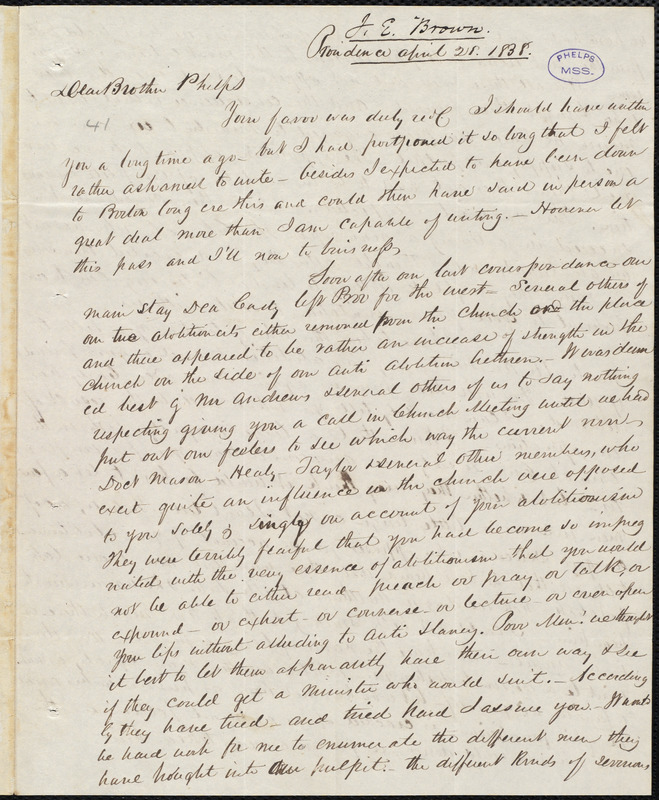 J. E. Brown.
Providence april 28. 1838.
PHELPS
MSS.
Dear Brother Phelps
41
Your favor was duly rec'd I should have written
you a long time ago - but I had postponed it so long that I felt
rather ashamed to write - besides I expected to have been down
to Boston long ere this and could then have said in person a
great deal more than I am capable of writing. - However let
this pass and I'll now to business,
Soon after our last correspondance our
main stay Dea Cady left Prov for the west - Several others of
our true abolitionists either removed from the church and the place
and there appeared to be rather an increase of strength in the
church on the side of our anti abolition brethren. - It was deem
ed best by Mr Andrews & several others of us to say nothing
respecting giving you a call in Church Meeting until we had
put out our feelers to see which way the current runs,
Doct Mason - Healy - Taylor & several other members, who
exert quite an influence in the church were opposed
to you solely & singly on account of your abolitionism
They were terribly fearful that you had become so impreg
nated with the very essence of abolitionism that you would
not be able to either read preach or pray or talk, or
expound - or exhort - or converse - or lecture - or even open
your lips without alluding to Anti Slavery. Poor Men! we thought
it best to let them apparantly have their own way & see
if they could get a Minister who would suit. - According
ly they have tried - and tried hard I assure you - It would
be hard work for me to enumerate the different men they
have brought into our pulpit. - the different kinds of sermons